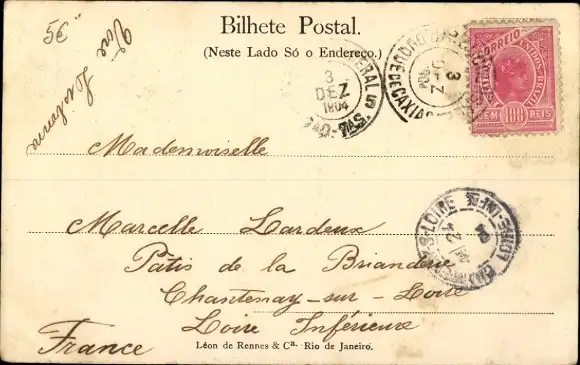 5€
Vire
Bilhete Postal.
(Neste Lado Só o Endereço.)
3
DEZ
1904
3
DEZ
DUQUE DE CAXIAS
CORREIO
100 REIS
Mademoiselle
Marcelle Lardeux
Pâtis de la Brianderie
Chantenay-sur-Loire
Loire Inférieure
France
S-LOIRE
LOIRE-INFRE
Léon de Rennes & Cª. Rio de Janeiro.